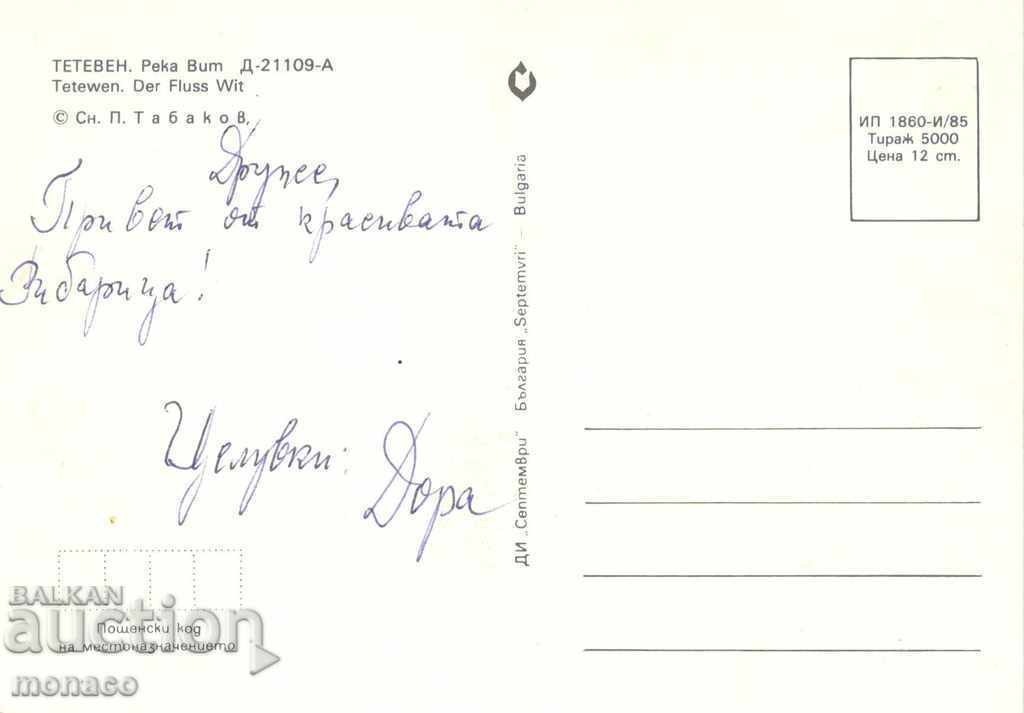 ТЕТЕВЕН. Река Вит Д-21109-А
Tetewen. Der Fluss Wit
© Сн. П. Табаков
Дружке,
Привет от красивата
Рибарица!
Целувки:
Дора
Пощенски код
на местоназначението
ДИ „Септември" България „Septemvri" – Bulgaria
ИП 1860-И/85
Тираж 5000
Цена 12 ст.
BALKAN
auction
monaco